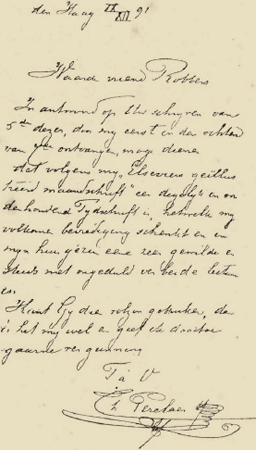 den Haag IX/XII 91
Waarde vriend Robbers
In antwoord op Uw schrijven van
5den dezer, don my eerst in den ochtend
van ontvangen, moge dienen
dat volgens my "Elseviers geïllus
treerd maandschrift" een degelijk en on
derhoudend Tydschrift is, hetwelk my
volkomen bevrediging schenkt en in
myn huisgezin eene zeer gewilde en
steeds met ongeduld verbeide lectuur
is.
Kunt Gy die regelen gebruiken, dan
is het my wel en geef ik daartoe
gaarne vergunning
T à V
Perelaer